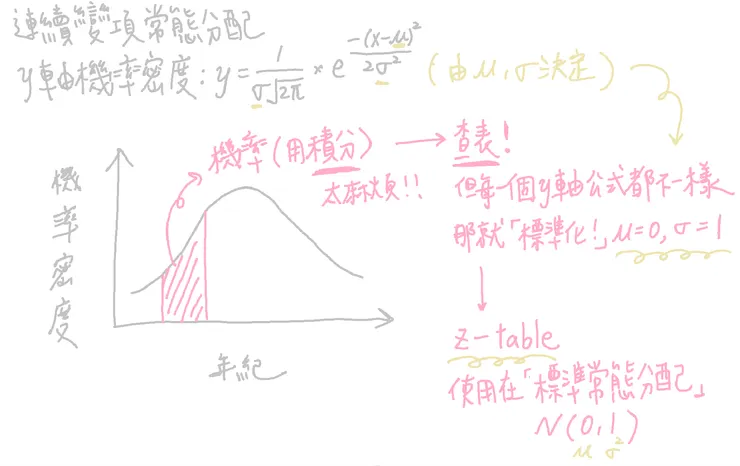 連續變項常態分配
y軸機率密度: y = 1/(σ√2π) × e^(-(x-μ)²/2σ²) (由μ, σ決定)
機率(用積分) → 查表!
太麻煩!!
但每一個y軸公式都不一樣
那就「標準化!」μ=0, σ=1
機率密度
年紀
z-table
使用在「標準常態分配」
N(0,1)
μ σ²